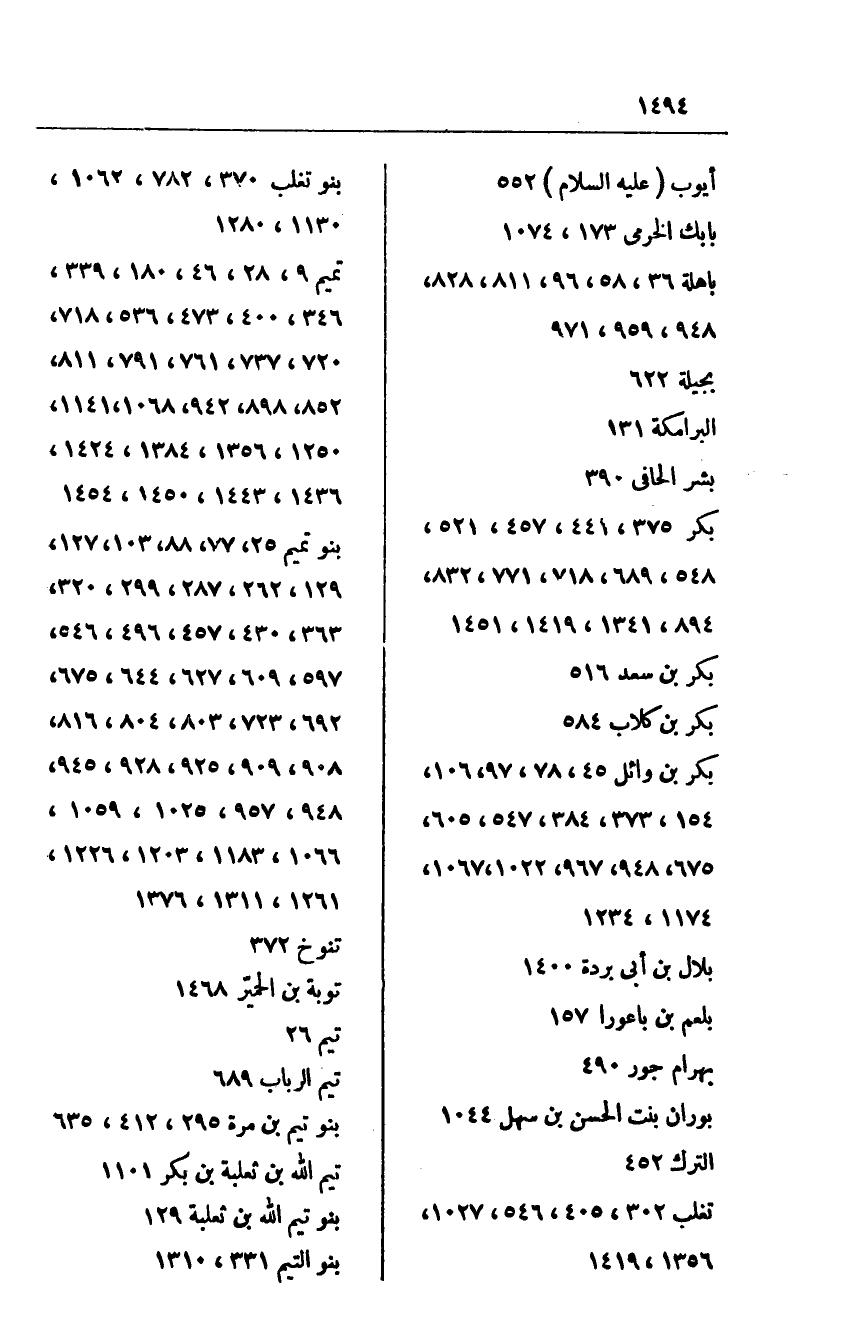 ١٤٩٤
أيوب ( عليه السلام ) ٥٥٢
بابك الخرمى ١٧٣ ، ١٠٧٤
باهلة ٣٦ ، ٥٨ ، ٩٦ ، ٨١١ ، ٨٢٨،
٩٤٨ ، ٩٥٩ ، ٩٧١
بجيلة ٦٢٢
البرامكة ١٣١
بشر الحافى ٣٩٠
بكر ٣٧٥ ، ٤٤١ ، ٤٥٧ ، ٥٢١ ،
٥٤٨ ، ٦٨٩ ، ٧١٨ ، ٧٧١ ، ٨٣٢،
٨٩٤ ، ١٣٤١ ، ١٤١٩ ، ١٤٥١
بكر بن سعد ٥١٦
بكر بن كلاب ٥٨٤
بكر بن وائل ٤٥ ، ٧٨ ، ٩٧، ١٠٦،
١٥٤ ، ٣٧٣ ، ٣٨٤ ، ٥٤٧ ، ٦٠٥،
٦٧٥، ٩٤٨، ٩٦٧، ١٠٢٢،١٠٦٧،
١١٧٤ ، ١٢٣٤
بلال بن أبى بردة ١٤٠٠
بلعم بن باعورا ١٥٧
بهرام جور ٤٩٠
بوران بنت الحسن بن سهل ١٠٤٤
الترك ٤٥٢
تغلب ٣٠٢ ، ٤٠٥ ، ٥٤٦ ، ١٠٢٧،
١٣٥٦ ، ١٤١٩
بنو تغلب ٣٧٠ ، ٧٨٢ ، ١٠٦٢ ،
١١٣٠ ، ١٢٨٠
تميم ٩ ، ٢٨ ، ٤٦ ، ١٨٠ ، ٣٣٩ ،
٣٤٦ ، ٤٠٠ ، ٤٧٣ ، ٥٣٦ ، ٧١٨،
٧٢٠ ، ٧٣٧ ، ٧٦١ ، ٧٩١ ، ٨١١،
٨٥٢، ٨٩٨، ٩٤٢، ١٠٦٨،١١٤١،
١٢٥٠ ، ١٣٥٦ ، ١٣٨٤ ، ١٤٢٤ ،
١٤٣٦ ، ١٤٤٣ ، ١٤٥٠ ، ١٤٥٤
بنو تميم ٢٥، ٧٧، ٨٨، ١٠٣، ١٢٧،
١٢٩ ، ٢٦٢ ، ٢٨٧ ، ٢٩٩ ، ٣٢٠،
٣٦٣ ، ٤٣٠ ، ٤٥٧ ، ٤٩٦ ، ٥٤٦،
٥٩٧ ، ٦٠٩ ، ٦٢٧ ، ٦٤٤ ، ٦٧٥،
٦٩٢ ، ٧٢٣ ، ٨٠٣ ، ٨٠٤ ، ٨١٦،
٩٠٨ ، ٩٠٩ ، ٩٢٥ ، ٩٢٨ ، ٩٤٥،
٩٤٨ ، ٩٥٧ ، ١٠٢٥ ، ١٠٥٩ ،
١٠٦٦ ، ١١٨٣ ، ١٢٠٣ ، ١٢٢٦ ،
١٢٦١ ، ١٣١١ ، ١٣٧٦
تنوخ ٣٧٢
توبة بن الحميّر ١٤٦٨
تيم ٢٦
تيم الرباب ٦٨٩
بنو تيم بن مرة ٢٩٥ ، ٤١٢ ، ٦٣٥
تيم الله بن ثعلبة بن بكر ١١٠١
بنو تيم الله بن ثعلبة ١٢٩
بنو التيم ٣٣١ ، ١٣١٠